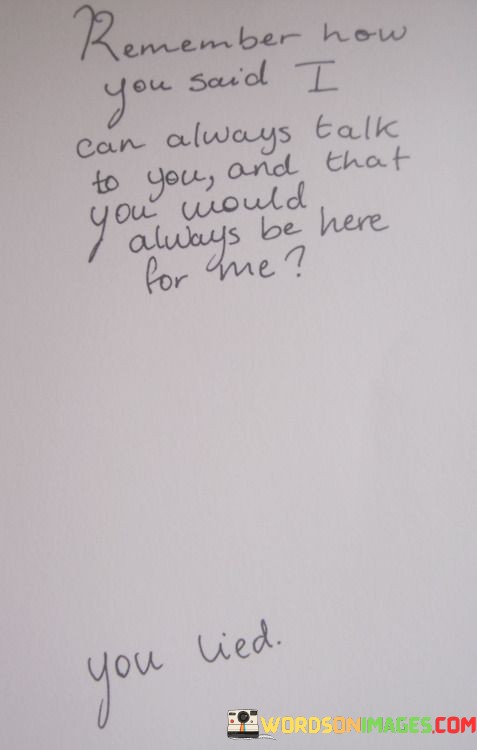 Remember how
you said I
can always talk
to you, and that
you would
always be here
for me?
you lied.
WORDSONIMAGES.COM